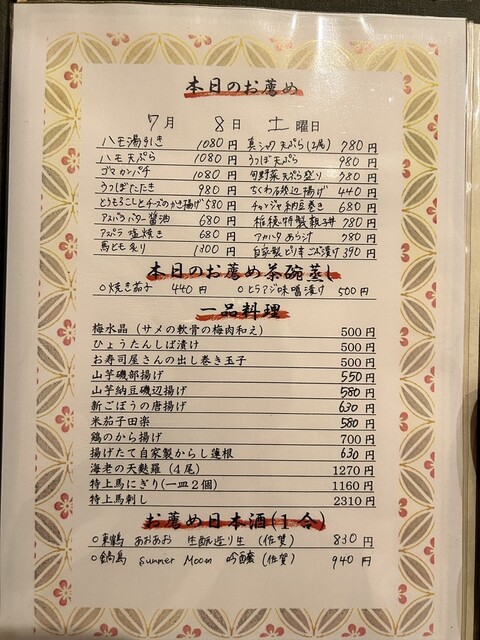 本日のお薦め
7月 8日 土曜日
ハモ湯引き 1080円 真シャコ天ぷら(2尾) 780円
ハモ天ぷら 1080円 うつぼ天ぷら 980円
ゴマカンパチ 1080円 旬野菜天ぷら盛り 780円
うつぼたたき 980円 ちくわ磯辺揚げ 440円
とうもろこしとチーズのかき揚げ 580円 チャンジャ納豆巻き 680円
アスパラバター醤油 680円 特製親子丼 780円
アスパラ塩焼き 680円 アカハタあら汁 780円
馬ヒモ炙り 1300円 自家製ピリ辛ごぼう漬け 390円
本日のお薦め茶碗蒸し
○焼き茄子 440円 ○ヒラアジ味噌漬け 500円
一品料理
梅水晶(サメの軟骨の梅肉和え) 500円
ひょうたんしば漬け 500円
お寿司屋さんの出し巻き玉子 500円
山芋磯部揚げ 550円
山芋納豆磯辺揚げ 580円
新ごぼうの唐揚げ 630円
米茄子田楽 580円
鶏のから揚げ 700円
揚げたて自家製からし蓮根 630円
海老の天麩羅(4尾) 1270円
特上馬にぎり(一皿2個) 1160円
特上馬刺し 2310円
お薦め日本酒(1合)
○東鶴 あおあお 生酛造り生 (佐賀) 830円
○鍋島 Summer Moon 吟醸 (佐賀) 940円